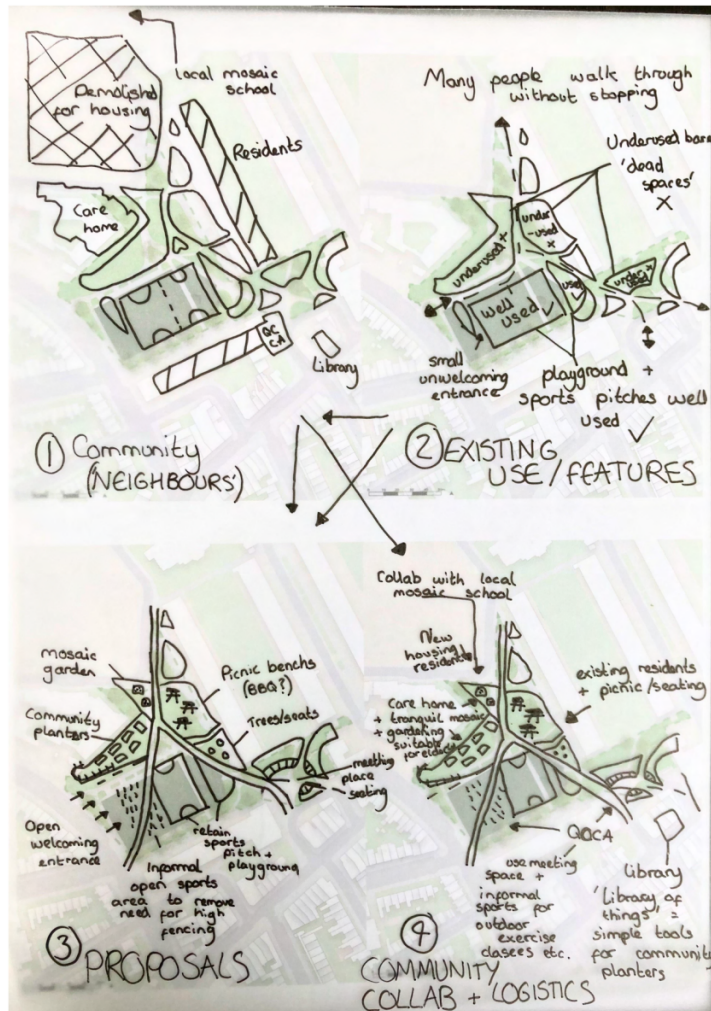 local mosaic
school
Demolished
for housing
Residents
Care
home
QC
CA
Library
① Community
(NEIGHBOURS')
Many people walk through
without stopping
Underused bare
'dead
spaces'
X
under
-used
x
underused x
well
used ✓
used
✓
under x
used
small
unwelcoming
entrance
playground +
sports pitches well
used ✓
② EXISTING
USE/FEATURES
mosaic
garden
Picnic benchs
(BBQ?)
Community
planters
Trees/seats
meeting
place
seating
Open
welcoming
entrance
retain
sports
pitch +
playground
Informal
open sports
area to remove
need for high
fencing
③ PROPOSALS
Collab with local
mosaic school
New
housing
residents
existing residents
+ picnic/seating
Care home
+ tranquil mosaic
+ gardening
suitable
for elderly
QCCA
use meeting
space +
informal
sports for
outdoor
exercise
classes etc.
Library
'Library of
things' =
simple tools
for community
planters
④
COMMUNITY
COLLAB + LOGISTICS